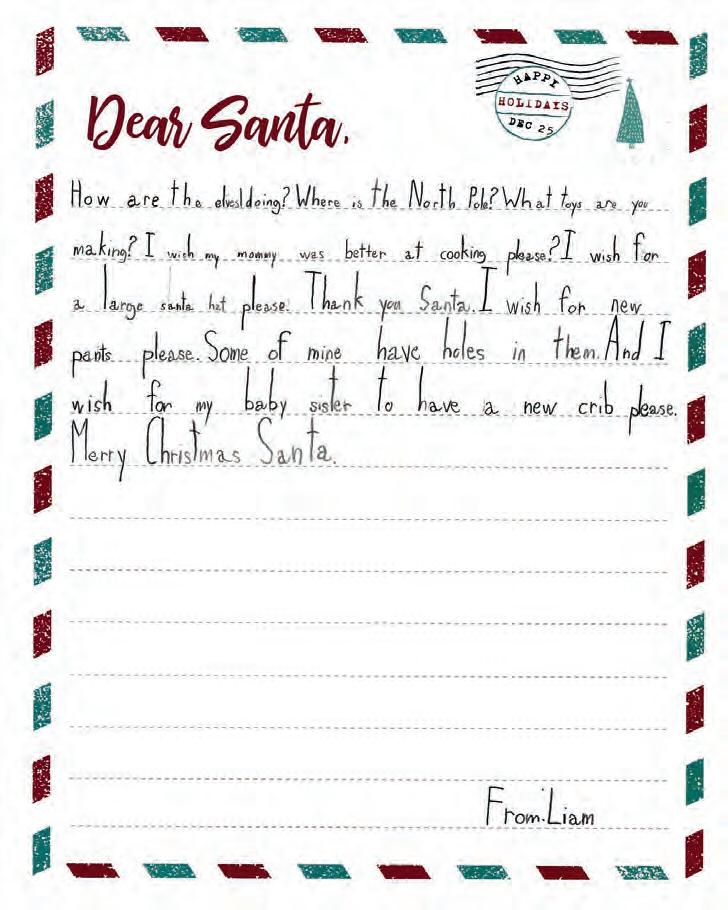 HAPPY
HOLIDAYS
DEC 25
Dear Santa,
How are the elvesldoing? Where is the North Pole? What toys are you
making? I wish my mommy was better at cooking please? I wish for
a large santa hat please. Thank you Santa. I wish for new
pants please. Some of mine have holes in them. And I
wish for my baby sister to have a new crib please.
Merry Christmas Santa.
From: Liam